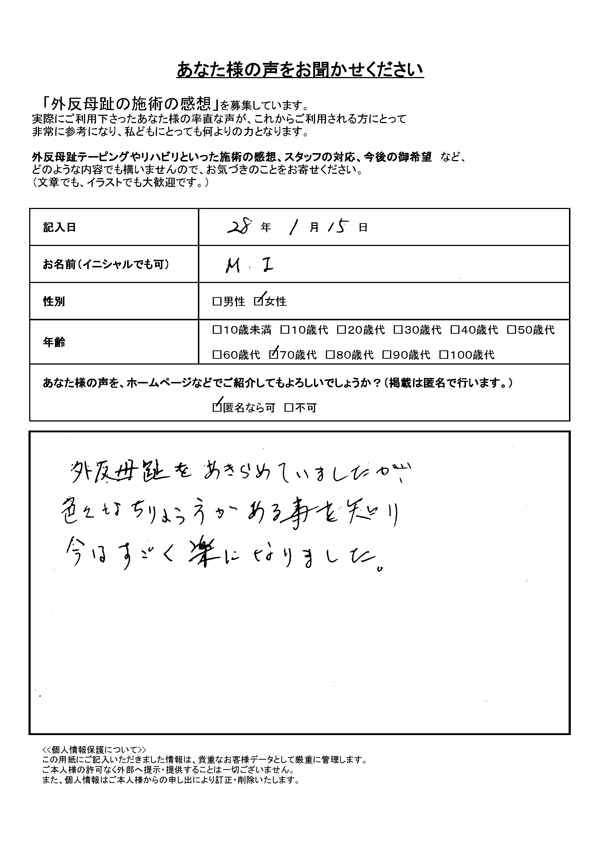 あなた様の声をお聞かせください
「外反母趾の施術の感想」を募集しています。
実際にご利用下さったあなた様の率直な声が、これからご利用される方にとって
非常に参考になり、私どもにとっても何よりの力となります。
外反母趾テーピングやリハビリといった施術の感想、スタッフの対応、今後の御希望　など、
どのような内容でも構いませんので、お気づきのことをお寄せください。
（文章でも、イラストでも大歓迎です。）
記入日 28 年 1 月 15 日
お名前（イニシャルでも可） M . I
性別 □男性 ☑女性
年齢 □10歳未満 □10歳代 □20歳代 □30歳代 □40歳代 □50歳代
□60歳代 ☑70歳代 □80歳代 □90歳代 □100歳代
あなた様の声を、ホームページなどでご紹介してもよろしいでしょうか？（掲載は匿名で行います。）
☑匿名なら可 □不可
外反母趾をあきらめていましたが、
色々なちりょう方がある事を知り
今はすごく楽になりました。
<<個人情報保護について>>
この用紙にご記入いただきました情報は、貴重なお客様データとして厳重に管理します。
ご本人様の許可なく外部へ提示・提供することは一切ございません。
また、個人情報はご本人様からの申し出により訂正・削除いたします。